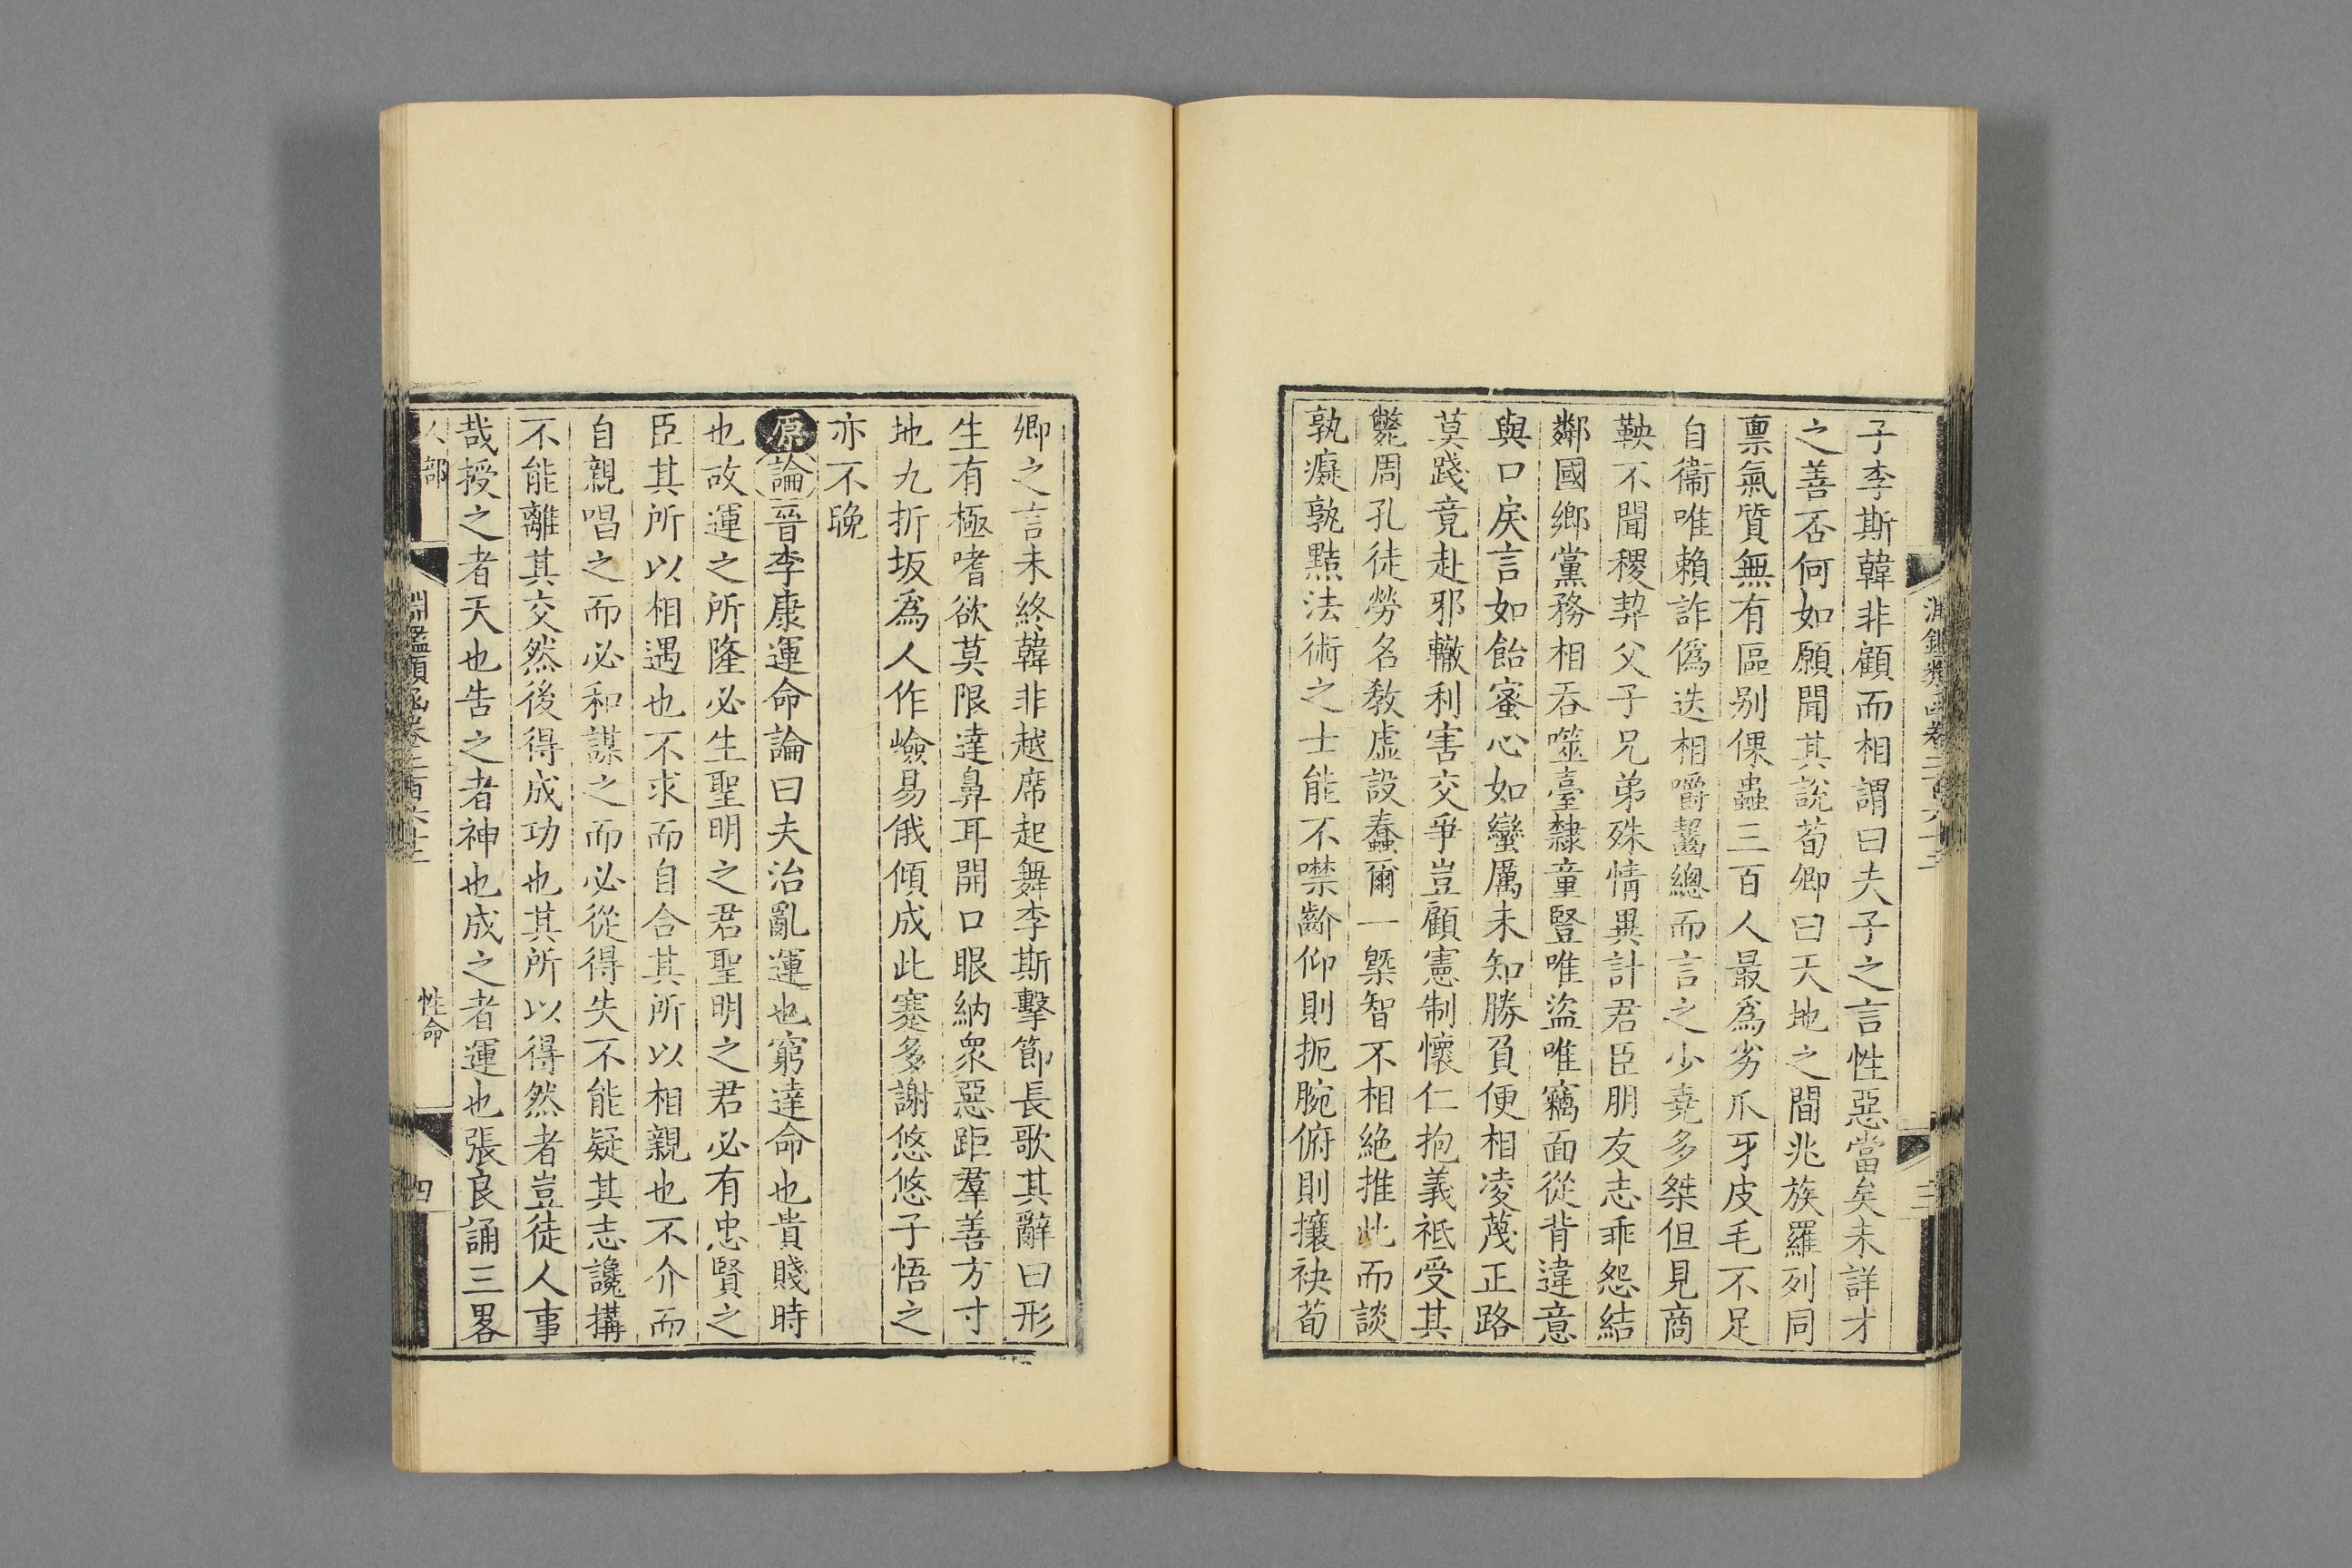 子李斯韓非顧而相謂曰夫子之言性惡當矣未詳才
之善否何如願聞其說荀卿曰天地之間兆族羅列同
禀氣質無有區別倮蟲三百人最爲劣爪牙皮毛不足
自衞唯賴詐僞迭相嚼齧總而言之少堯多桀但見商
鞅不聞稷契父子兄弟殊情異計君臣朋友志乖怨結
鄰國鄉黨務相吞噬臺隸童豎唯盜唯竊面從背違意
與口戾言如飴蜜心如蠻厲未知勝負便相凌蔑正路
莫踐竟赴邪轍利害交爭豈顧憲制懷仁抱義祗受其
斃周孔徒勞名教虛設蠢爾一槩智不相絶推此而談
孰癡孰黠法術之士能不噤齘仰則扼腕俯則攘袂荀
淵鑑類函卷三百六十三
三
卿之言未終韓非越席起舞李斯擊節長歌其辭曰形
生有極嗜欲莫限達鼻耳開口眼納衆惡距羣善方寸
地九折坂爲人作嶮易俄傾成此蹇多謝悠悠子悟之
亦不晚
原論晉李康運命論曰夫治亂運也窮達命也貴賤時
也故運之所隆必生聖明之君聖明之君必有忠賢之
臣其所以相遇也不求而自合其所以相親也不介而
自親唱之而必和謀之而必從得失不能疑其志讒搆
不能離其交然後得成功也其所以得然者豈徒人事
哉授之者天也告之者神也成之者運也張良誦三畧
人部
淵鑑類函卷三百六十三
性命
四